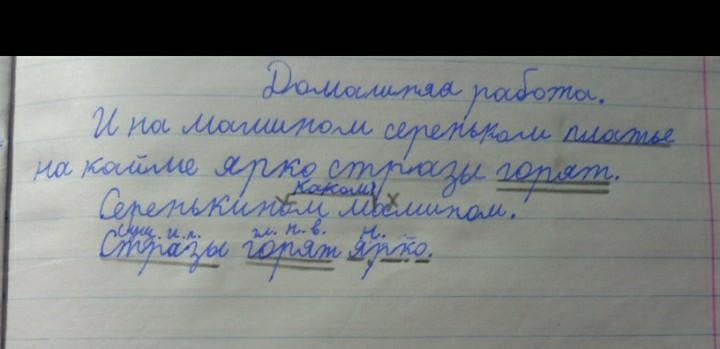 Домашняя работа.
И на мамином сереньком платье
на кайме ярко стразы горят.
каком?
Серенькином х х мамином.
сущ. и.п. гл. н.в. н.
Стразы горят ярко.